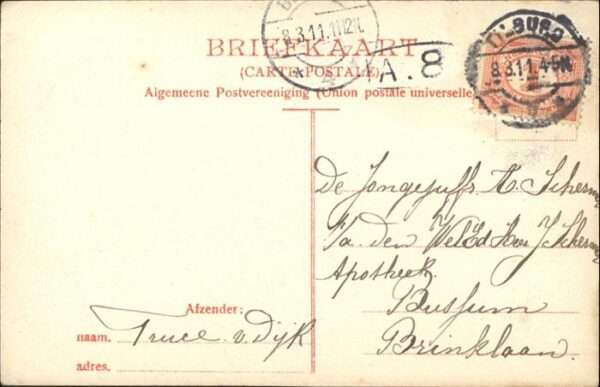 8.3.11.11-12N.
BRIEFKAART
(CARTE POSTALE)
A.8
Algemeene Postvereeniging (Union postale universelle
TILBURG
8.3.11.4-5N.
De Jongejuffr. A. Scherme
p/a. den WelEd Heer J Scherme
Apotheek.
Bussum
Brinklaan.
Afzender:
naam. Truce v. Dijk
adres.